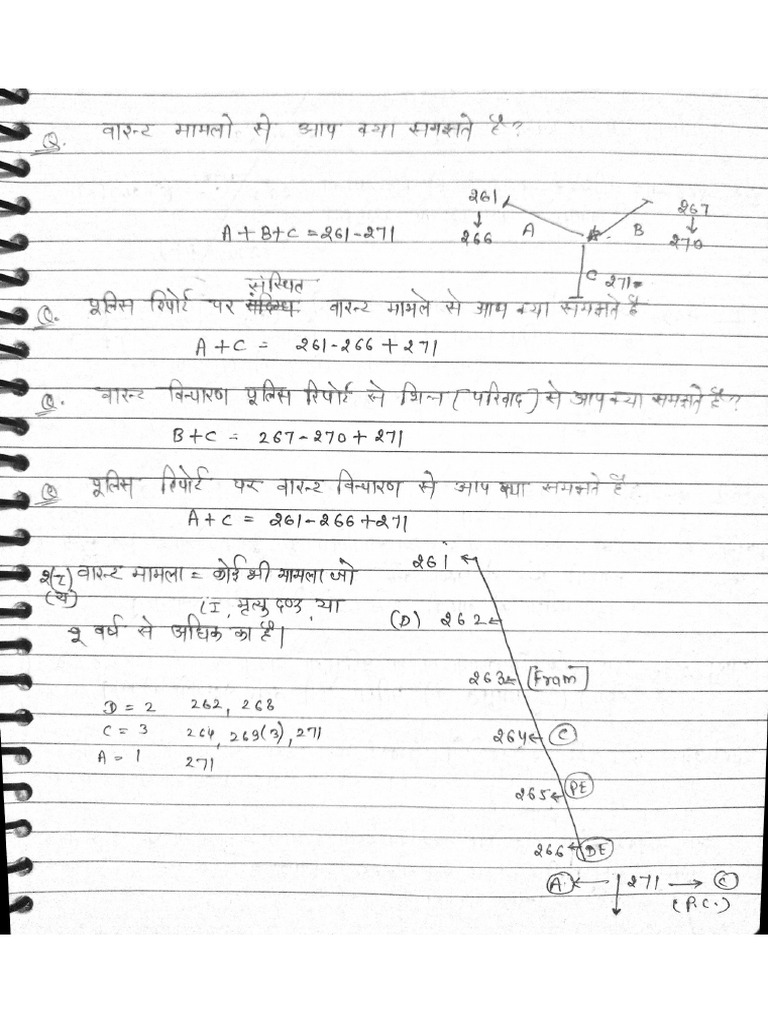 Q. वारन्ट मामलो से आप क्या समझते है?
261
267
A + B + C = 261-271
266
A
B
270
C
271
संस्थित
Q. पुलिस रिपोर्ट पर वारन्ट मामले से आप क्या समझते है
A + C = 261-266 + 271
Q. वारन्ट विचारण पुलिस रिपोर्ट से भिन्न (परिवाद) से आप क्या समझते है?
B + C = 267-270 + 271
Q पुलिस रिपोर्ट पर वारन्ट विचारण से आप क्या समझते है
A + C = 261-266+271
261
2(z) वारन्ट मामला = कोई भी मामला जो
(य) (I, मृत्यु दण्ड, या
(D) 262
2 वर्ष से अधिक का है।
263 [Fram]
D = 2 262, 268
C = 3 264, 269(3), 271
264 C
A = 1 271
265 PE
266 DE
A 271 C
(P.C.)